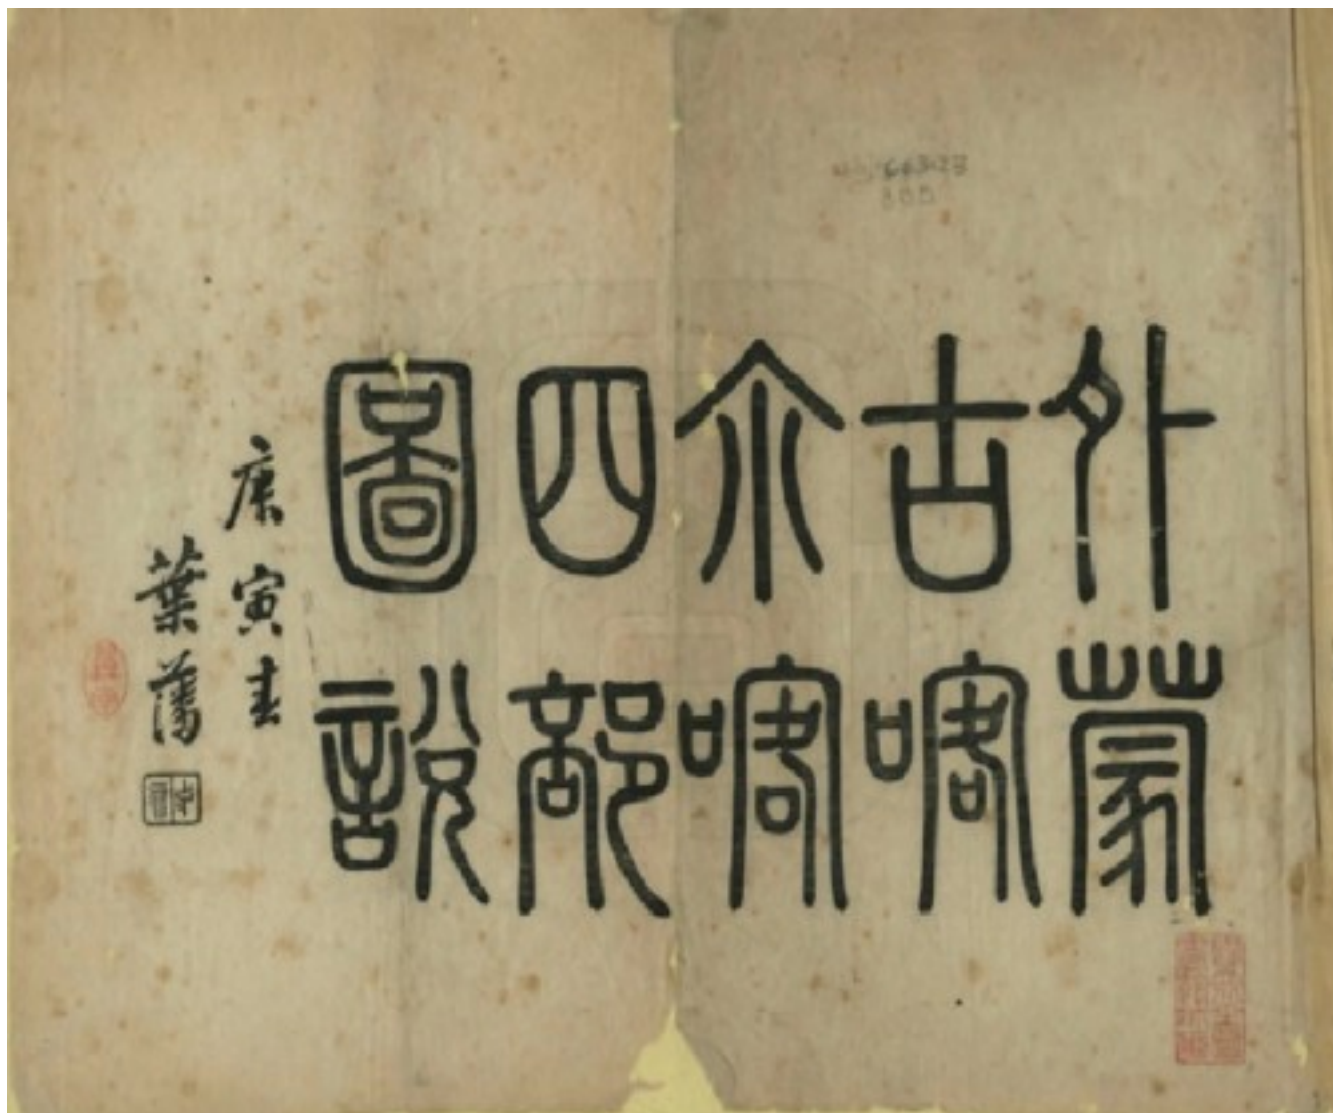 外蒙
古喀
尒喀
四部
圖說
庚寅春
葉藩